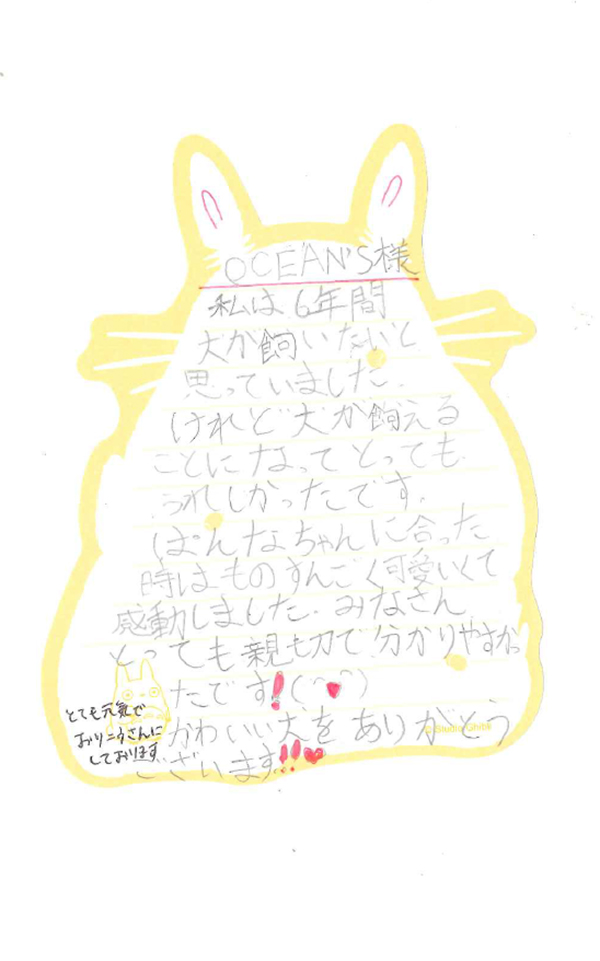 OCEAN'S様
私は6年間
犬が飼いたいと
思っていました.
けれど犬が飼える
ことになってとっても
うれしかったです.
ぽんなちゃんに合った
時はものすんごく可愛いくて
感動しました.みなさん
とっても親切で分かりやすかっ
たです!(^♥^)
かわいい犬をありがとう
ございます!!♥
とても元気で
おりこうさんに
しております
© Studio Ghibli